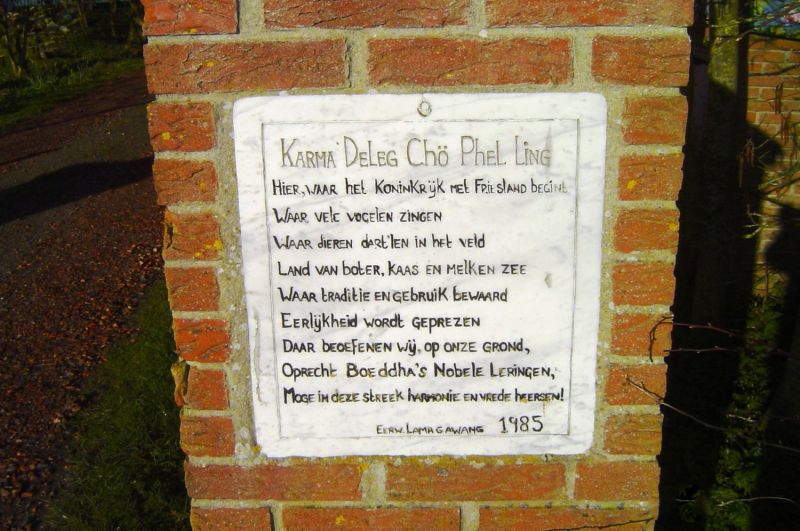 Karma Deleg Chö Phel Ling
Hier, waar het Koninkrijk met Friesland begint
Waar vele vogelen zingen
Waar dieren dart'len in het veld
Land van boter, kaas en melken zee
Waar traditie en gebruik bewaard
Eerlijkheid wordt geprezen
Daar beoefenen wij, op onze grond,
Oprecht Boeddha's Nobele Leringen,
Moge in deze streek harmonie en vrede heersen!
Eerw. Lama Gawang 1985